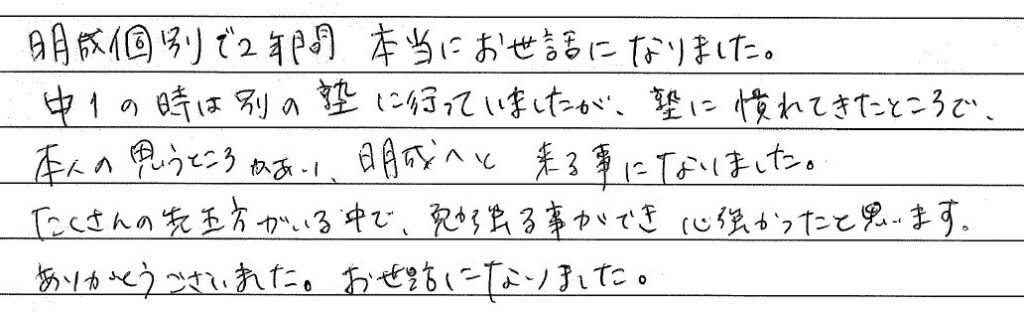 明成個別で2年間 本当にお世話になりました。
中1の時は別の塾に行っていましたが、塾に慣れてきたところで、
本人の思うところがあり、明成へと来る事になりました。
たくさんの先生方がいる中で、勉強する事ができ心強かったと思います。
ありがとうございました。お世話になりました。